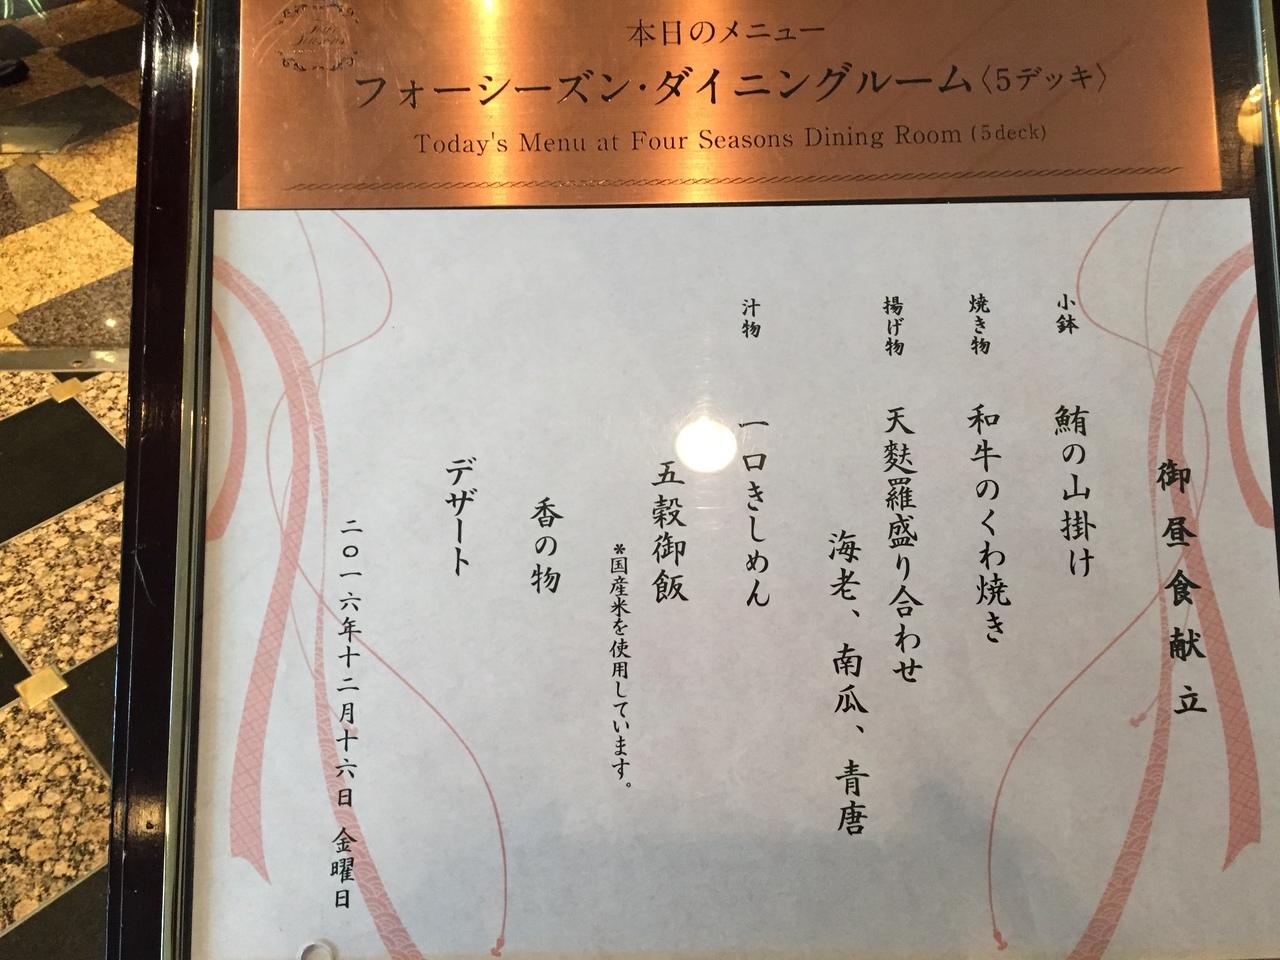 本日のメニュー
フォーシーズン・ダイニングルーム〈5デッキ〉
Today's Menu at Four Seasons Dining Room (5deck)
御昼食献立
小鉢 鮪の山掛け
焼き物 和牛のくわ焼き
揚げ物 天麩羅盛り合わせ
海老、南瓜、青唐
汁物 一口きしめん
五穀御飯
*国産米を使用しています。
香の物
デザート
二〇一六年十二月十六日 金曜日